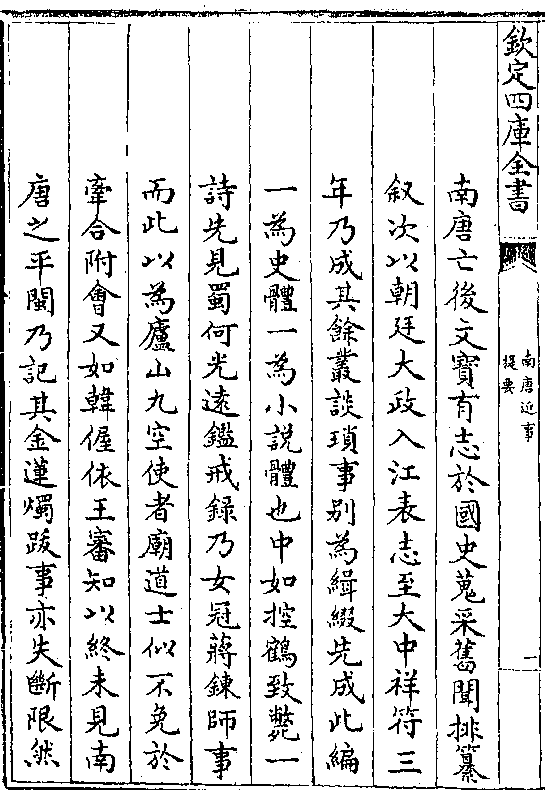 欽定四庫全書
南唐近事
提要
一
南唐亡後文寶有志於國史蒐采舊聞排纂
叙次以朝廷大政入江表志至大中祥符三
年乃成其餘叢談瑣事别為緝綴先成此編
一為史體一為小説體也中如控鶴致斃一
詩先見蜀何光逺鑑戒録乃女冠蔣鍊師事
而此以為廬山九空使者廟道士似不免於
牽合附會又如韓偓依王審知以終未見南
唐之平閩乃記其金蓮燭跋事亦失斷限然